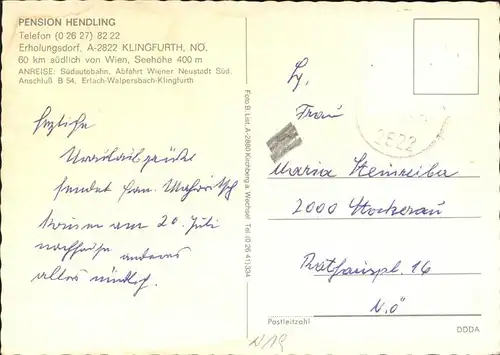 PENSION HENDLING
Telefon (0 26 27) 82 22
Erholungsdorf, A-2822 KLINGFURTH, NÖ.
60 km südlich von Wien, Seehöhe 400 m
ANREISE: Südautobahn, Abfahrt Wiener Neustadt Süd.
Anschluß B 54, Erlach-Walpersbach-Klingfurth
Herzliche
Urlaubsgrüße
sendet Fam.
am 20. Juli
nachhause anderes
alles mündlich.
Foto B. List, A-2880 Kirchberg a. Wechsel Tel (0 26 41) 334
2822
Frau
Maria
2000 Stockerau
Rathauspl. 16
N.Ö
Postleitzahl
DDDA